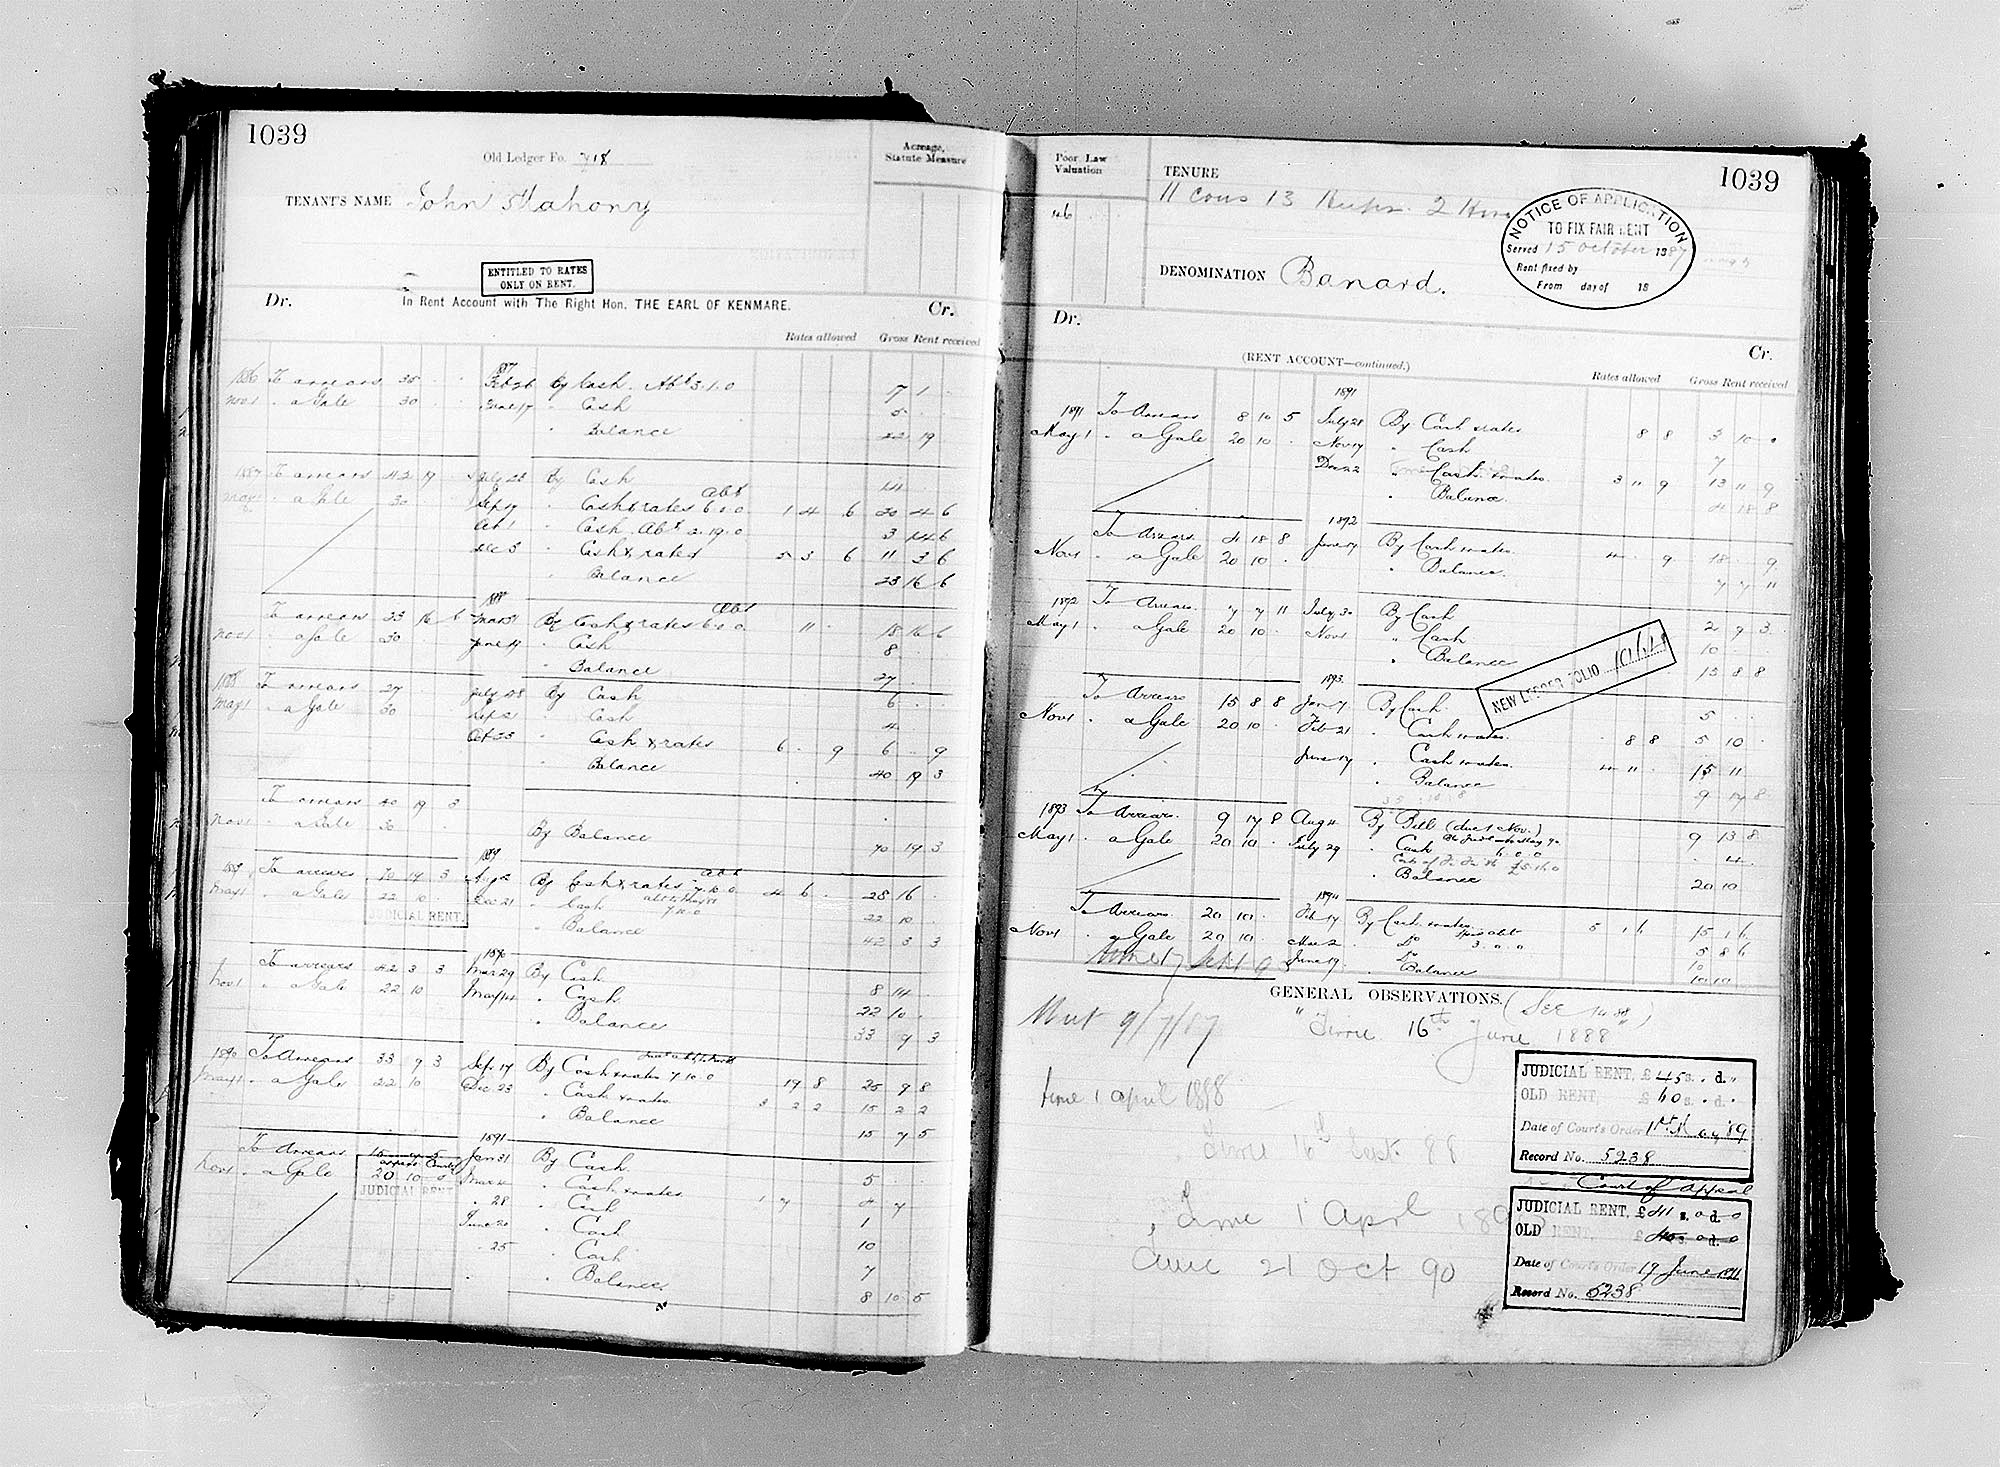 1039
Old Ledger Fo. 718
Acreage,
Statute Measure
TENANT'S NAME John Mahony
ENTITLED TO RATES
ONLY ON RENT.
Dr. In Rent Account with The Right Hon. THE EARL OF KENMARE. Cr.
Rates allowed Gross Rent received
1887
1886 To arrears 35 Feb 26 By Cash. Abt 3.1.0 7 1
Nov 1 " a Gale 30 June 17 " Cash 5
" Balance 22 19
1887 To arrears 42 19 July 23 By Cash
May 1 " a Gale 30 Sept 17 " Cash & rates abt 6.0.0 1 4 6 20 4 6
Oct 1 " Cash Abt 2.19.0 3 14 6
Dec 3 " Cash & rates 5 3 6 11 3 6
" Balance 23 16 6
1888
To arrears 23 16 6 Mar 31 By Cash & rates abt 6.0.0 11 18 16 6
Nov 1 " a Gale 30 June 19 " Cash 8
" Balance 27
1888 To arrears 27 July 28 By Cash 6
May 1 " a Gale 30 Sept 21 " Cash 4
Oct 23 " Cash & rates 6 9 6 9
" Balance 40 19 3
To arrears 40 19 3
Nov 1 " a Gale 30 By Balance 70 19 3
1889
1889 To arrears 70 19 3 Aug 2 By Cash & rates abt 7.10.0 4 6 28 16
May 1 " a Gale 22 10 Dec 21 " Cash 7.10.0 22 10
JUDICIAL RENT.
" Balance 42 3 3
1890
To arrears 42 3 3 Mar 29 By Cash 8 14
Nov 1 " a Gale 22 10 May 14 " Cash 22 10
" Balance 33 9 3
1890 To Arrears 33 9 3 Sept 17 By Cash & rates 7.10.0 19 8 25 9 8
May 1 " a Gale 22 10 Dec 23 " Cash & rates 3 2 2 15 2 2
" Balance 15 7 5
1891
To Arrears 15 7 5 Jan 31 By Cash 5
Nov 1 " a Gale 20 10 0 Mar " Cash & rates 1 7 4 7
JUDICIAL RENT
" 28 " Cash 1
June 20 " Cash 10
" 25 " Cash 7
" Balance 8 10 5
Poor Law
Valuation
TENURE
1039
11 Cows 13
46
NOTICE OF APPLICATION
TO FIX FAIR RENT
Served 15 October 1887
Rent fixed by
From day of 18
DENOMINATION Banard.
Dr. Cr.
(RENT ACCOUNT—continued.)
Rates allowed Gross Rent received
1891
1891 To Arrears 8 10 5 July 28 By Cash & rates 8 8 3 10
May 1 " a Gale 20 10 Nov 17 " Cash 7
Dec 22 " Cash & rates 3 11 9 13 11 9
" Balance 4 18 8
1892
To Arrears 4 18 8 June 17 By Cash & rates 4 9 18 9
Nov 1 " a Gale 20 10 " Balance 7 7 11
1892 To Arrears 7 7 11 July 30 By Cash 2 9 3
May 1 " a Gale 20 10 Nov 1 " Cash 10
" Balance 15 8 8
NEW LEDGER FOLIO
1893
To Arrears 15 8 8 Jan 7 By Cash 5
Nov 1 " a Gale 20 10 Feb 21 " Cash & rates 8 8 5 10
June 17 " Cash & rates 4 11 15 11
" Balance 9 17 8
1893 To Arrears 9 17 8 Aug 4 By Bill (due 1 Nov.) 9 13 8
May 1 " a Gale 20 10 July 29 " Cash 4
" Balance 20 10
1894
To Arrears 20 10 Feb 17 By Cash & rates 5 1 6 15 1 6
Nov 1 " a Gale 20 10 Mar 2 " Do 3.0.0 5 8 6
June 19 " Do 10
" Balance 10 10
GENERAL OBSERVATIONS. (SEE 1488)
Writ 9/7/87 "Time 16th June 1888"
time 1 april 1888
Time 16th Sept. 88
Time 1 April 1890
time 21 Oct 90
JUDICIAL RENT, £45 s. . d. "
OLD RENT, £60 s. . d. .
Date of Court's Order 1st May '89
Record No. 5238
Court of Appeal
JUDICIAL RENT, £41 s. 0 d. 0
OLD RENT, £45 s. 0 d. 0
Date of Court's Order 17 June 1891
Record No. 5238